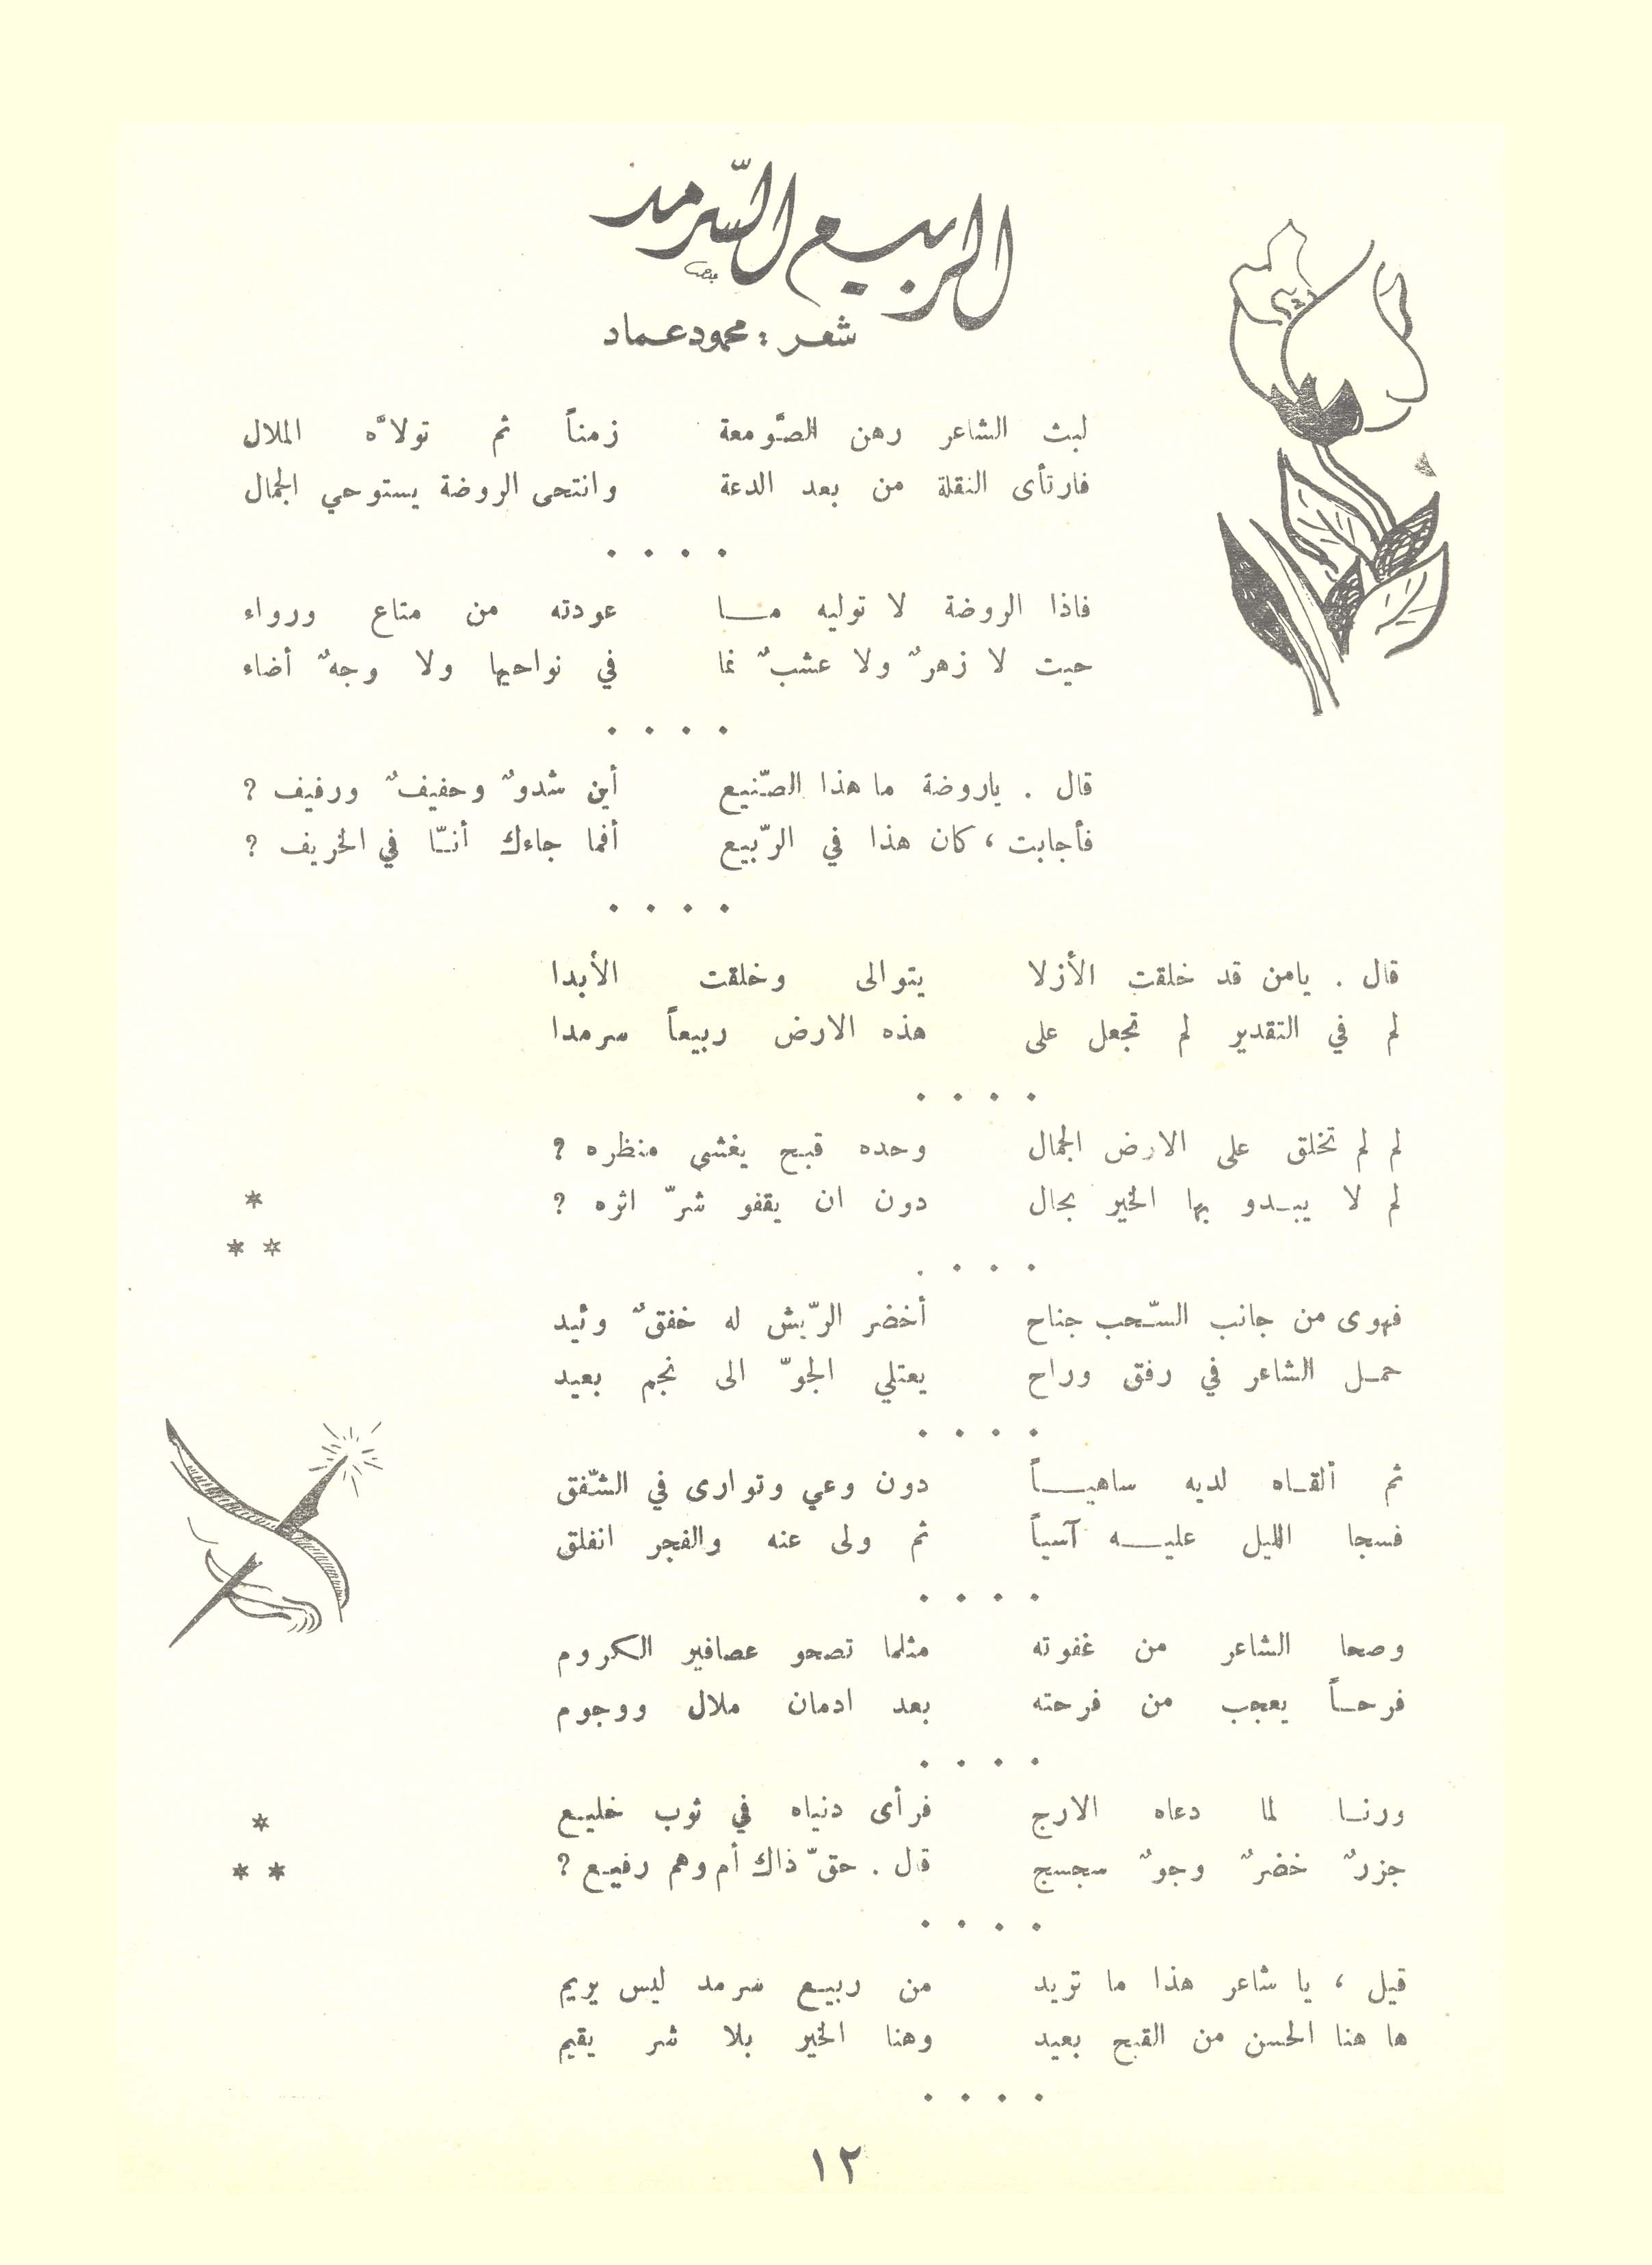 الربيع السّرمد
شعر : محمود عماد
لبث الشاعر رهن الصَّومعة زمناً ثم تولاَّه الملال
فارتأى النقلة من بعد الدعة وانتحى الروضة يستوحي الجمال
. . . .
فاذا الروضة لا توليه مـــا عودته من متاع ورواء
حيت لا زهرٌ ولا عشبٌ نما في نواحيها ولا وجهٌ أضاء
. . . .
قال . ياروضة ما هذا الصّنيع أين شدوٌ وحفيفٌ ورفيف ؟
فأجابت ، كان هذا في الرّبيع أفما جاءك أنـّا في الخريف ؟
. . . .
قال . يامن قد خلقت الأزلا يتوالى وخلقت الأبدا
لم في التقدير لم تجعل على هذه الارض ربيعاً سرمدا
. . . .
لم لم تخلق على الارض الجمال وحده قبح يغشي منظره ؟
لم لا يبـدو بها الخير بحال دون ان يقفو شرّ اثره ؟
* * *
. . . .
فهوى من جانب السّحب جناح أخضر الرّيش له خفقٌ وئيد
حمـل الشاعر في رفق وراح يعتلي الجوّ الى نجم بعيد
. . . .
ثم ألقـاه لديه ساهيــاً دون وعي وتوارى في الشّفق
فسجا الليل عليــه آسياً ثم ولى عنه والفجر انفلق
. . . .
وصحا الشاعر من غفوته مثلما تصحو عصافير الكروم
فرحـاً يعجب من فرحته بعد ادمان ملال ووجوم
. . . .
ورنـا لما دعاه الارج فرأى دنياه في ثوب خليـع
جزرٌ خضرٌ وجوٌ سجسج قال . حقّ ذاك أم وهم رفيـع ؟
* * *
. . . .
قيل ، يا شاعر هذا ما تريد من ربيـع سرمد ليس يريم
ها هنا الحسن من القبح بعيد وهنا الخير بلا شر يقيم
. . . .
١٢